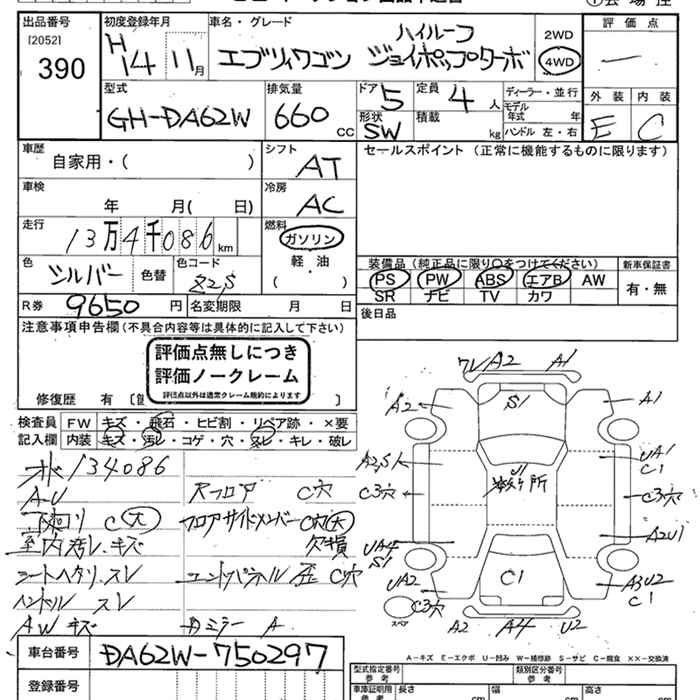 出品番号
[2052]
390
初度登録年月
H14 11月
車名・グレード
エブリィワゴン ハイルーフ
ジョイポップターボ
2WD
4WD
評価点
ー
外装 内装
E C
型式
GH-DA62W
排気量
660 CC
ドア 5
定員 4 人
形状 SW
積載 kg
ディーラー・並行
モデル年式 年
ハンドル 左・右
車歴
自家用・( )
シフト
AT
セールスポイント (正常に機能するものに限ります)
車検
年 月( 日)
冷房
AC
走行
13万4千086km
燃料
ガソリン
軽・油
( )
色
シルバー
色替
色コード
Z2S
装備品(純正品に限り○をつけてください)
新車保証書
PS PW ABS エアB AW
SR ナビ TV カワ
有・無
R券 9650 円
名変期限 月 日
後日品
注意事項申告欄(不具合内容等は具体的に記入して下さい)
評価点無しにつき
評価ノークレーム
評価点以外は通常クレーム規約によります
修復歴 有 [
]
検査員
記入欄
FW キズ・飛石・ヒビ割・リペア跡・×要
内装 キズ・汚レ・コゲ・穴・スレ・キレ・破レ
134086
A-U
下廻り C大
室内汚レ、キズ
シートヘタリ、スレ
ハンドル スレ
AW キズ
Rフロア C穴
フロアサイドメンバー C穴大
欠損
エンドパネル 歪 C穴
Dミラー A
ワレA2 A1
A2
S1
A1
A2S1
U1
UA1
C1
C3穴
C3穴
UA4
S1
A2U1
UA2
C1
A3U2
C1
C3穴
スペア
A2 A4 U2
車台番号
DA62W-750297
登録番号
A－キズ E－エクボ U－凹み W－補修跡 S－サビ C－腐食 XX－交換済
型式指定番号
参考
類別区分番号
参考
車庫証明用
参考
長さ cm
幅 cm
高さ cm